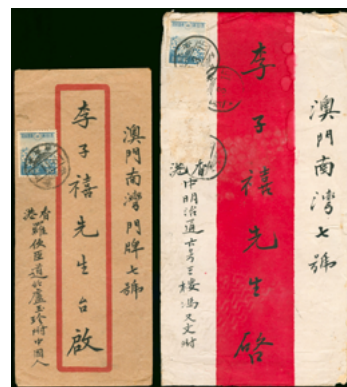 澳門南灣門牌七號
李子禧先生台啟
香港
羅便臣道
盧玉珍附中國人
澳門南灣七號
李子禧先生啓
香港
中明治通
三樓馮文附